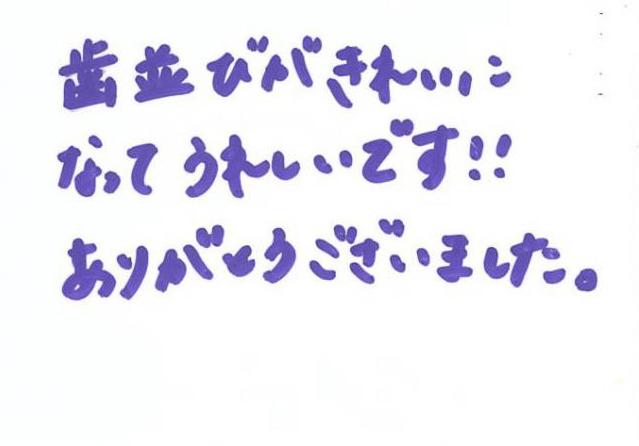 歯並びがきれいに
なってうれしいです!!
ありがとうございました。